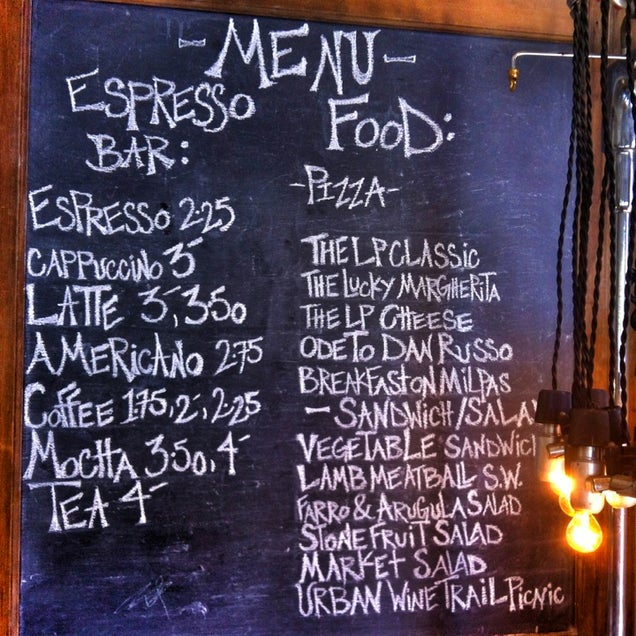 -MENU-
ESPRESSO
BAR:
ESPRESSO 2.25
CAPPUCCINO 3-
LATTE 3-, 3.50
AMERICANO 2.75
COFFEE 1.75, 2-, 2.25
MOCHA 3.50, 4-
TEA 4-
FOOD:
-PIZZA-
THE LP CLASSIC
THE LUCKY MARGHERITA
THE LP CHEESE
ODE TO DAN RUSSO
BREAKFAST ON MILPAS
- SANDWICH/SALA
VEGETABLE SANDWIC
LAMB MEATBALL S.W.
FARRO & ARUGULA SALAD
STONE FRUIT SALAD
MARKET SALAD
URBAN WINE TRAIL PICNIC